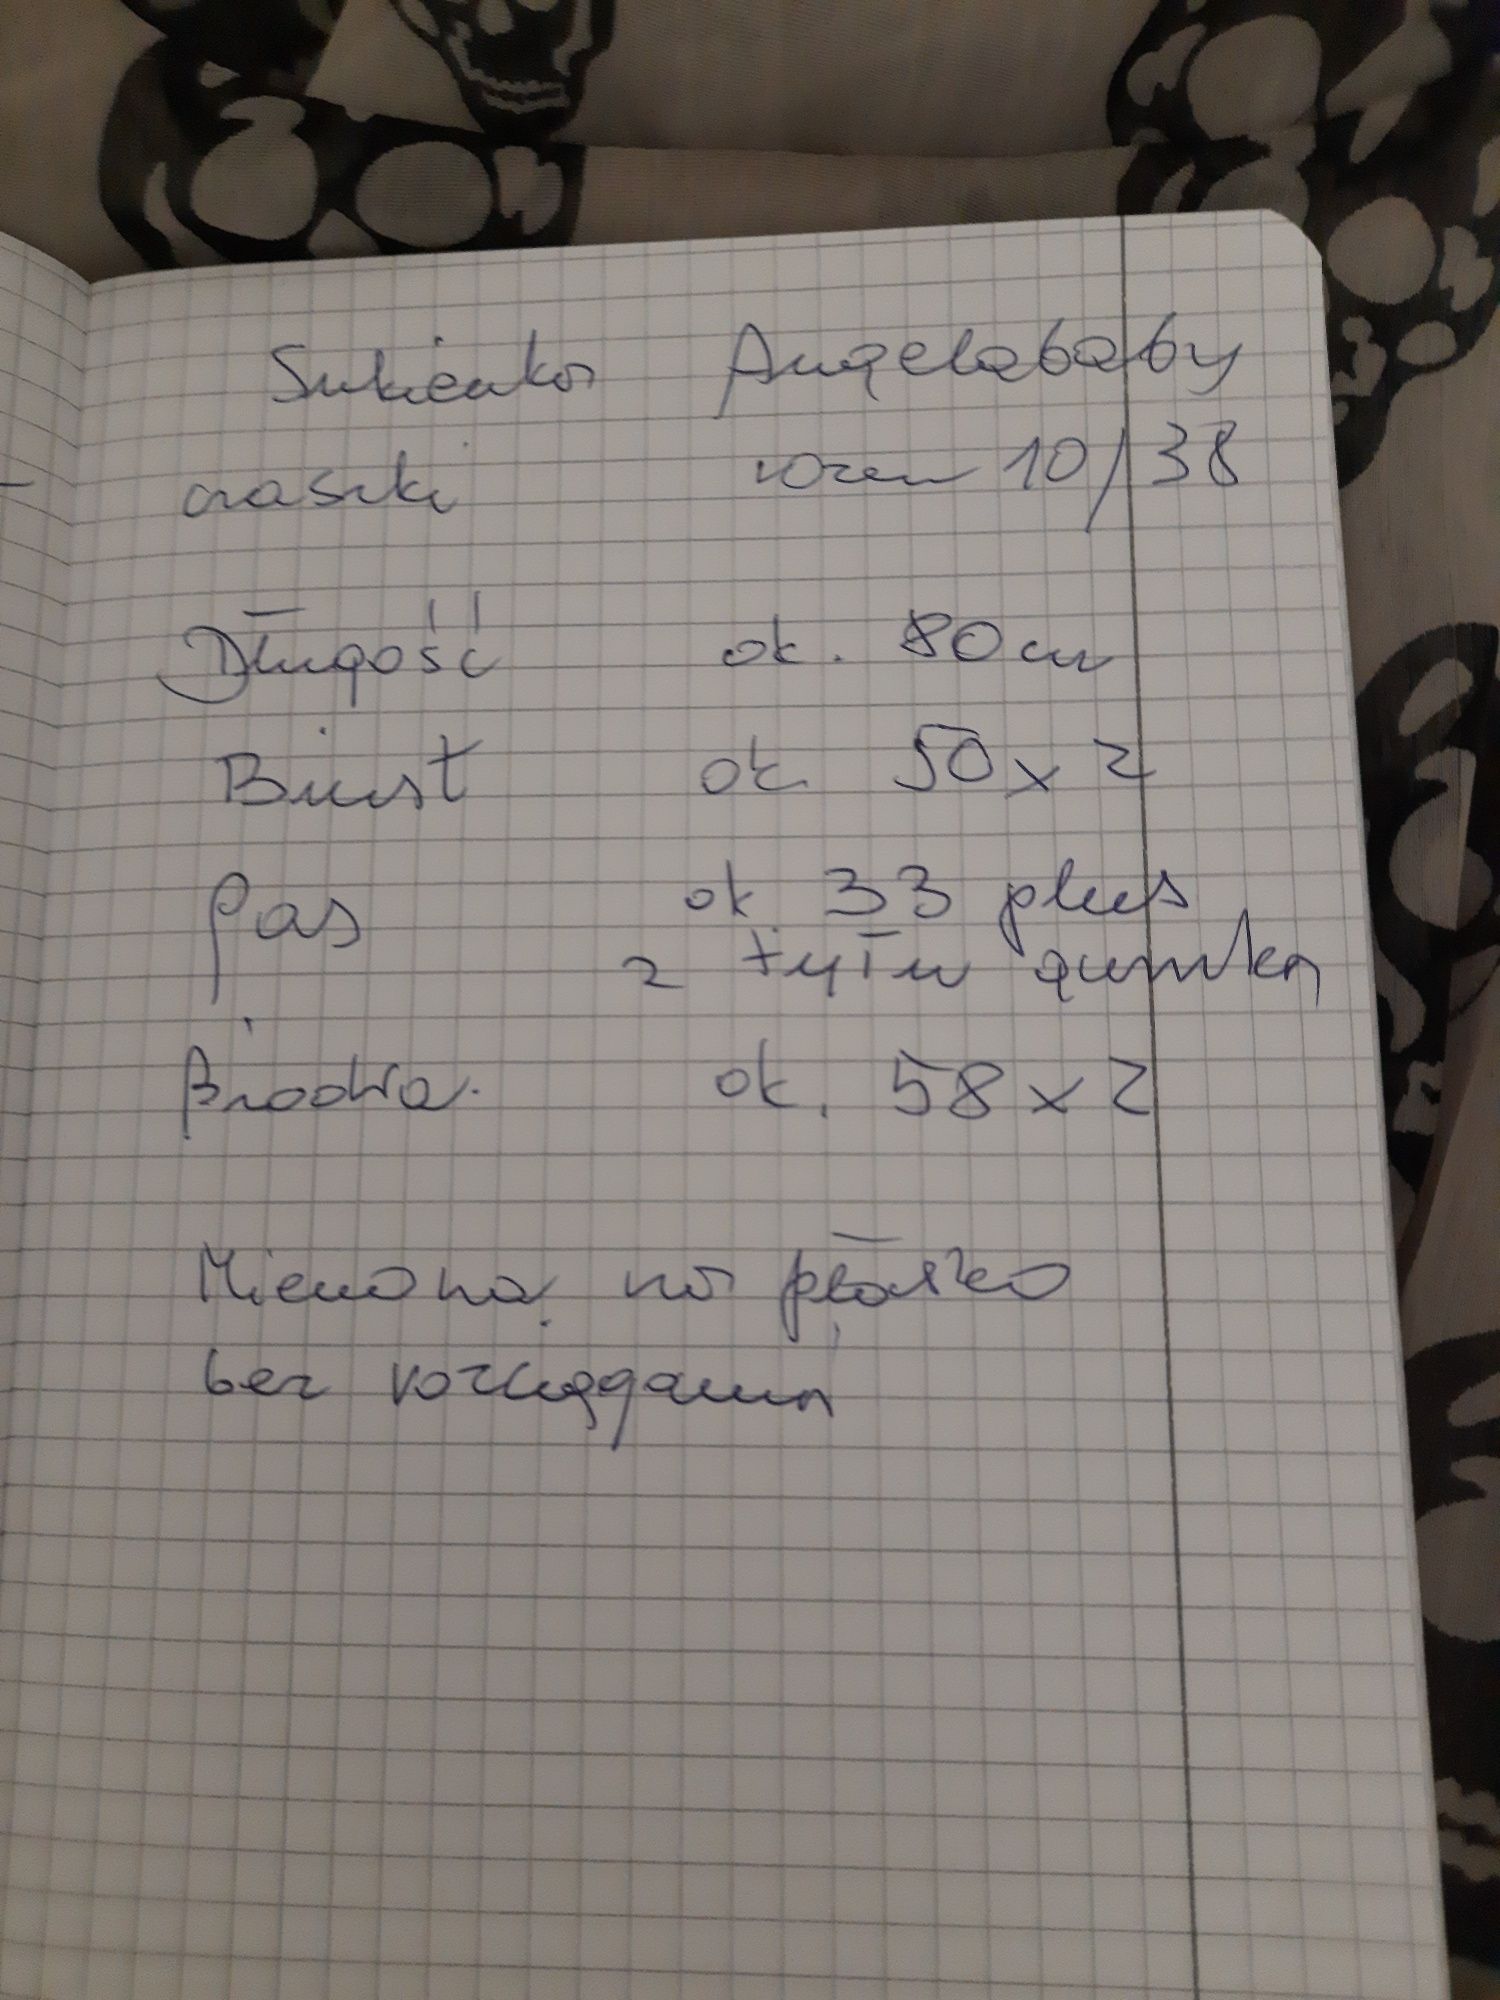 Sukienka Angelababy
czaszki rozm 10/38
Długość ok. 80cm
Biust ok. 50x2
Pas ok 33 plus
z tyłu gumka
Biodra. ok. 58x2
Mierzona na płasko
bez rozciągania